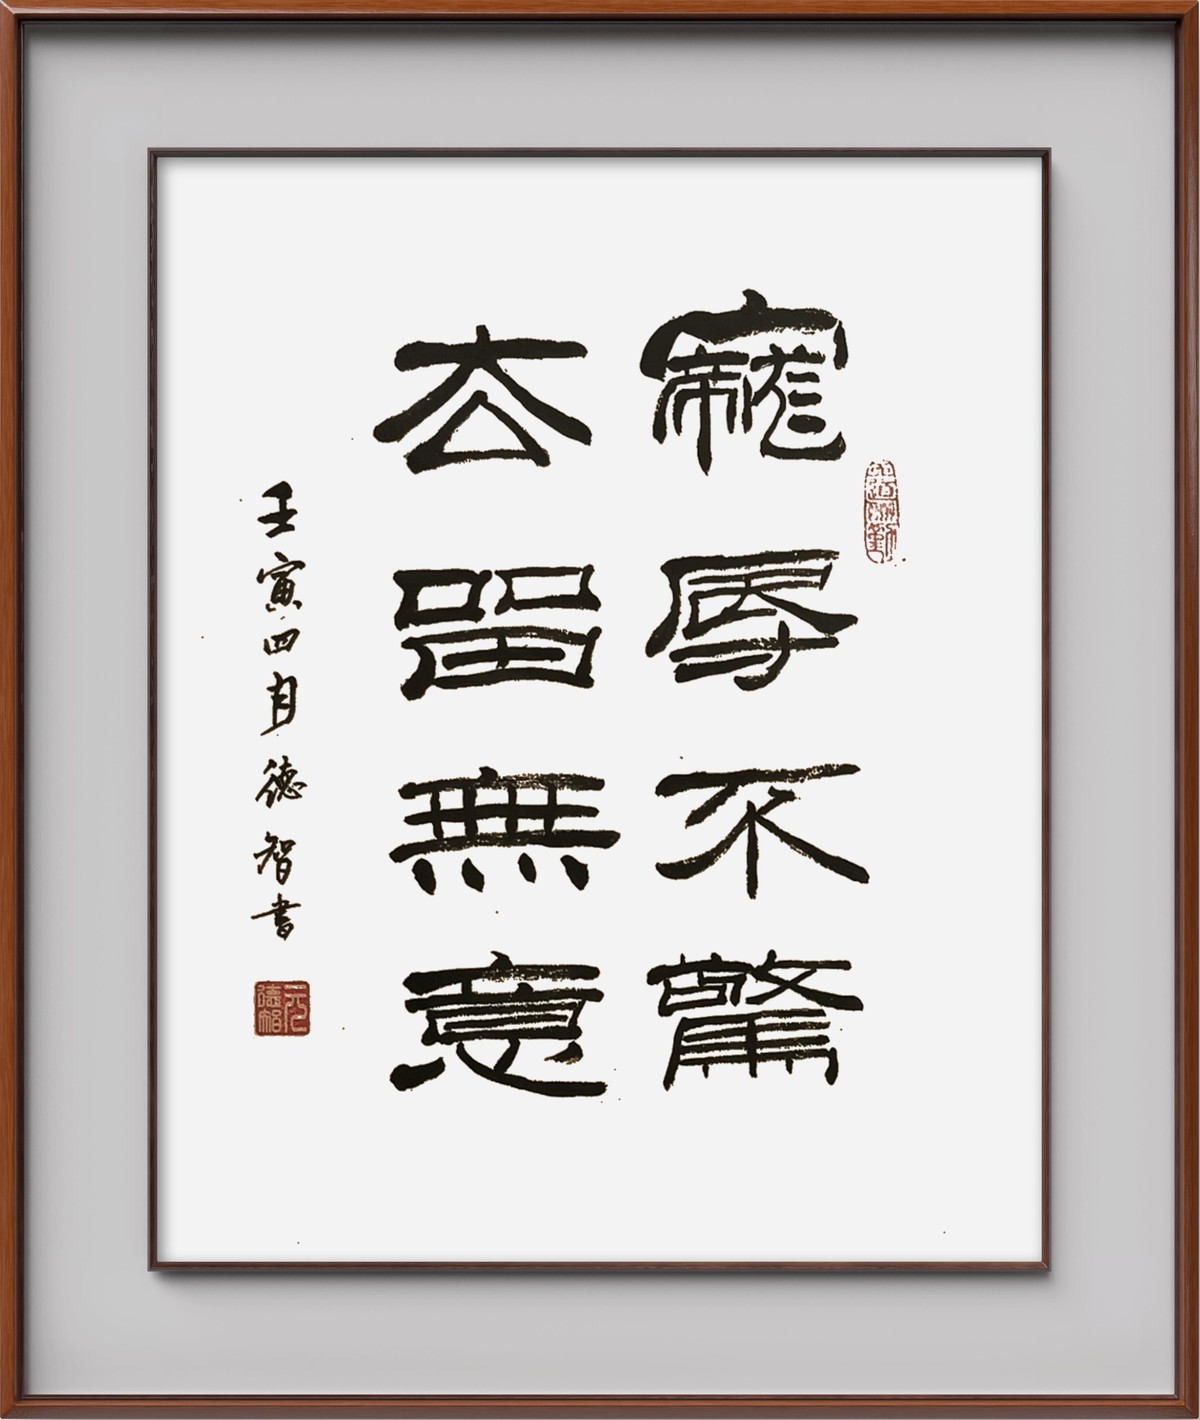 寵辱不驚
去留無意
壬寅四月德智書